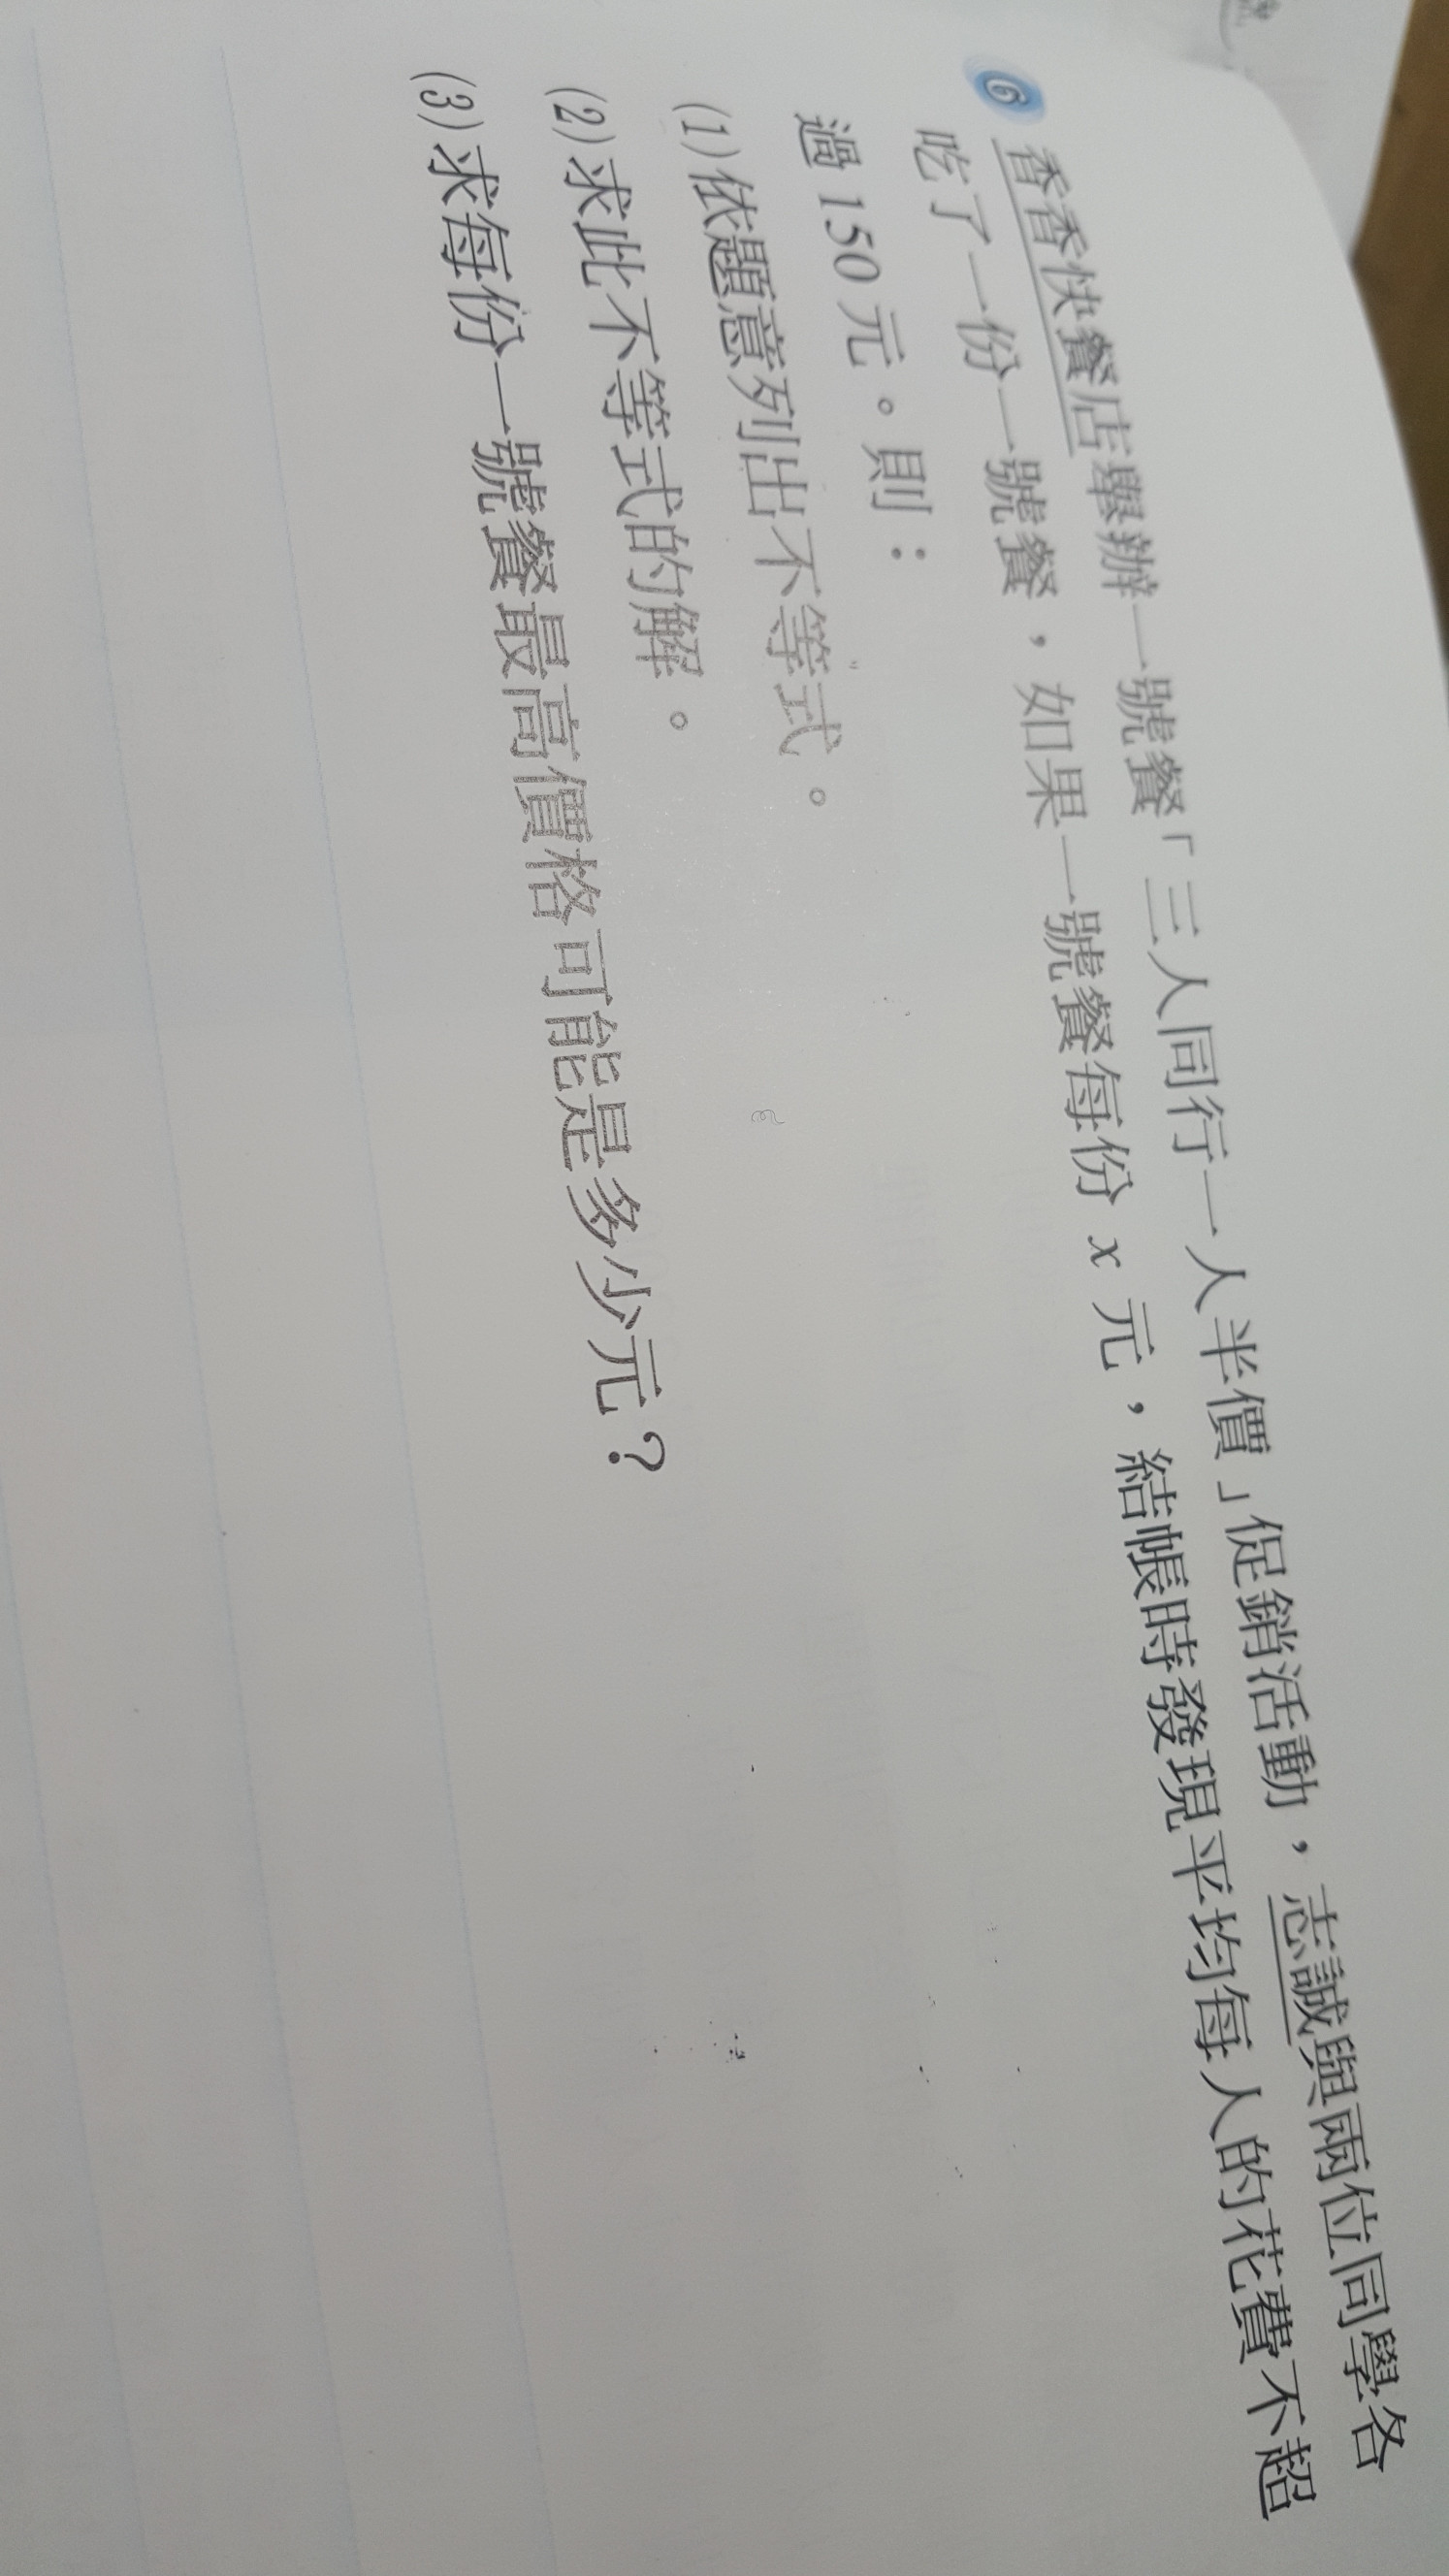 6 香香快餐店舉辦一號餐「三人同行一人半價」促銷活動，志誠與兩位同學各
吃了一份一號餐，如果一號餐每份 x 元，結帳時發現平均每人的花費不超
過 150 元。則：
(1)依題意列出不等式。
(2)求此不等式的解。
(3)求每份一號餐最高價格可能是多少元？